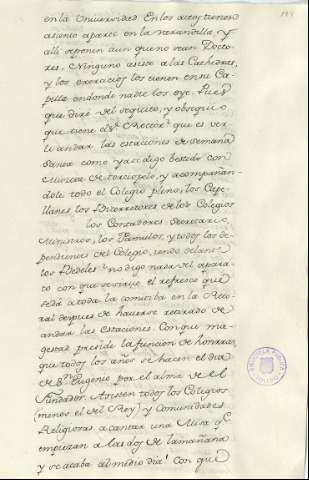 en la Universidad. En los actos tienen
asiento aparte en la neranidta, y
alli se ponen aun que no sean Docto
res. Ninguno asiste a las Cathedras,
y los exercicios los tienen en su Ca
pilla en donde nadie los oye. Pues
que diré del sequito, y obsequio
que tiene el Sr. Rector? que es ver
le andar las estaciones de semana
santa como ya digo bestido con
Muceta de terciopelo, y acompañan-
dole todo el Colegio pleno, los Cape-
llanes, los Directores de los Colegios
los Contadores Secretario,
Ministros, los Famulos, y todos los de-
pendientes del Colegio, iendo delante
los Bedeles? no digo nada del apara-
to con que se sirve el refresco que
se dá a toda la comitiba en la Recto-
ral despues de haverse retirado de
andar las Estaciones. Con que ma-
gestad preside la funcion de honrras,
que todos los años se hacen el dia
de Sn. Eugenio por el alma de el
Fundador. Asisten todos los Colegios
(menos el del Rey) y Comunidades
Religiosas a cantar una Misa qe.
empiezan a las dos de la mañana
y se acaba al medio dia! Con que